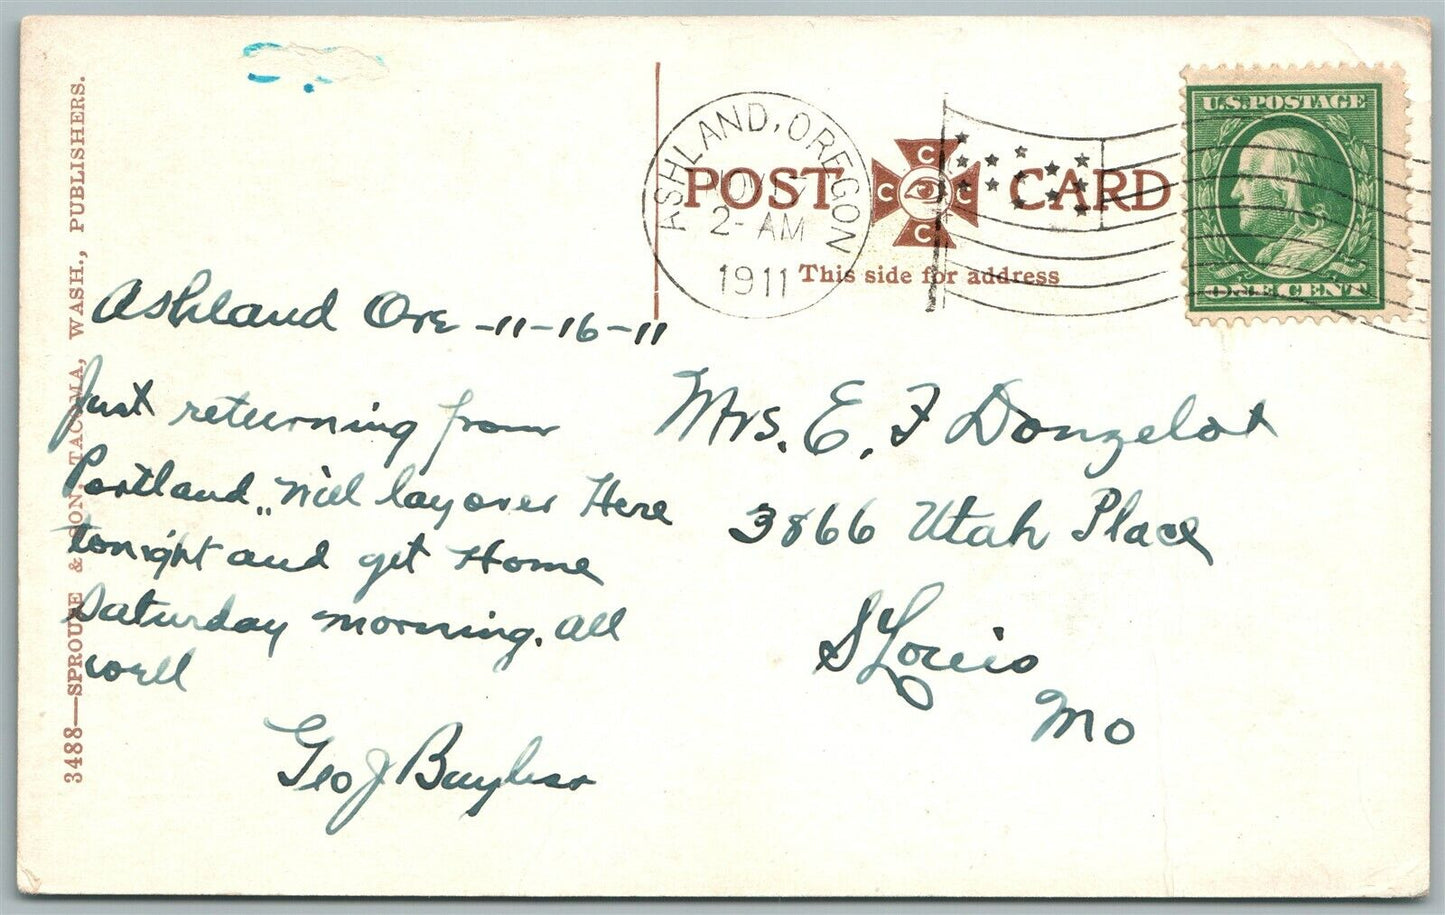 3488—SPROULE & SON, TACOMA, WASH., PUBLISHERS.
POST CARD
C C C C
This side for address
ASHLAND, OREGON
2- AM
1911
U.S. POSTAGE
ONE CENT
Ashland Ore -11-16-11
Just returning from
Portland, Will lay over Here
tonight and get Home
Saturday morning. all
well
Geo J
Mrs. E. F Donzelot
3866 Utah Place
St Louis
Mo